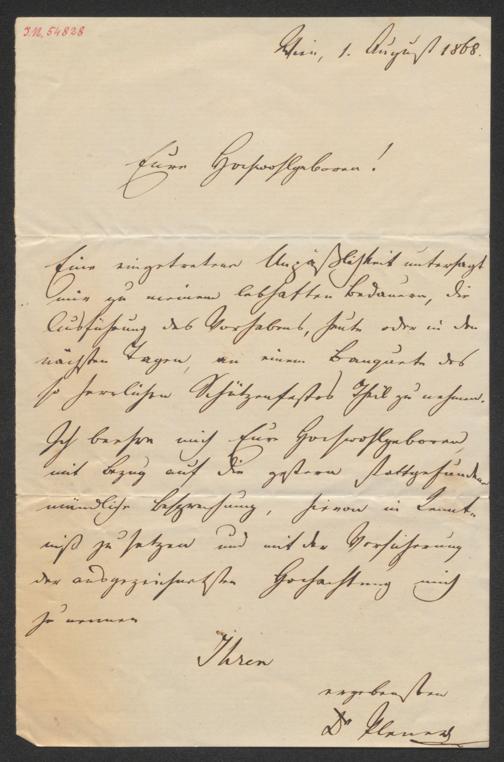 I.N. 54828
Wien, 1. August 1868.
Eure Hochwohlgeboren!
Eine eingetretene Unpäßlichkeit untersagt
mir zu meinem lebhaften Bedauern, die
Ausführung des Vorhabens, heute oder in den
nächsten Tagen, an einem Banquete des
so herrlichen Schützenfestes Theil zu nehmen.
Ich beehre mich Eure Hochwohlgeboren,
mit Bezug auf die gestern stattgefundene
mündliche Besprechung, hievon in Kennt-
niß zu setzen und mit der Versicherung
der ausgezeichnetsten Hochachtung mich
zu nennen
Ihren
ergebensten
Dr Plener